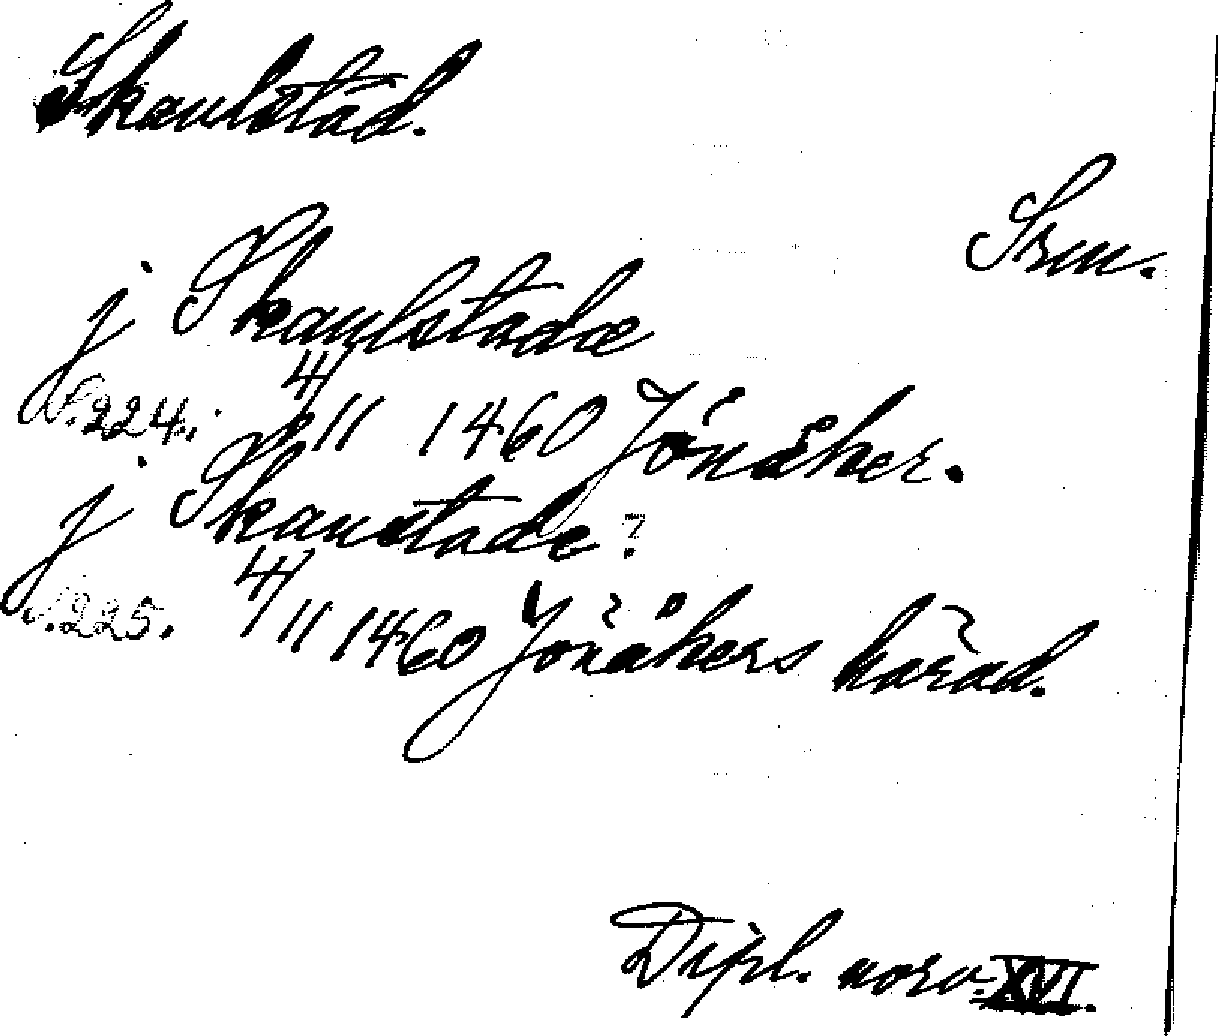 Skaulstad.
Srm.
j Skaulstadæ
s. 224. 4/11 1460 Jönåker.
j Skaustade?
s. 225. 4/11 1460 Jönåkers härad.
Dipl. norv. XVI.